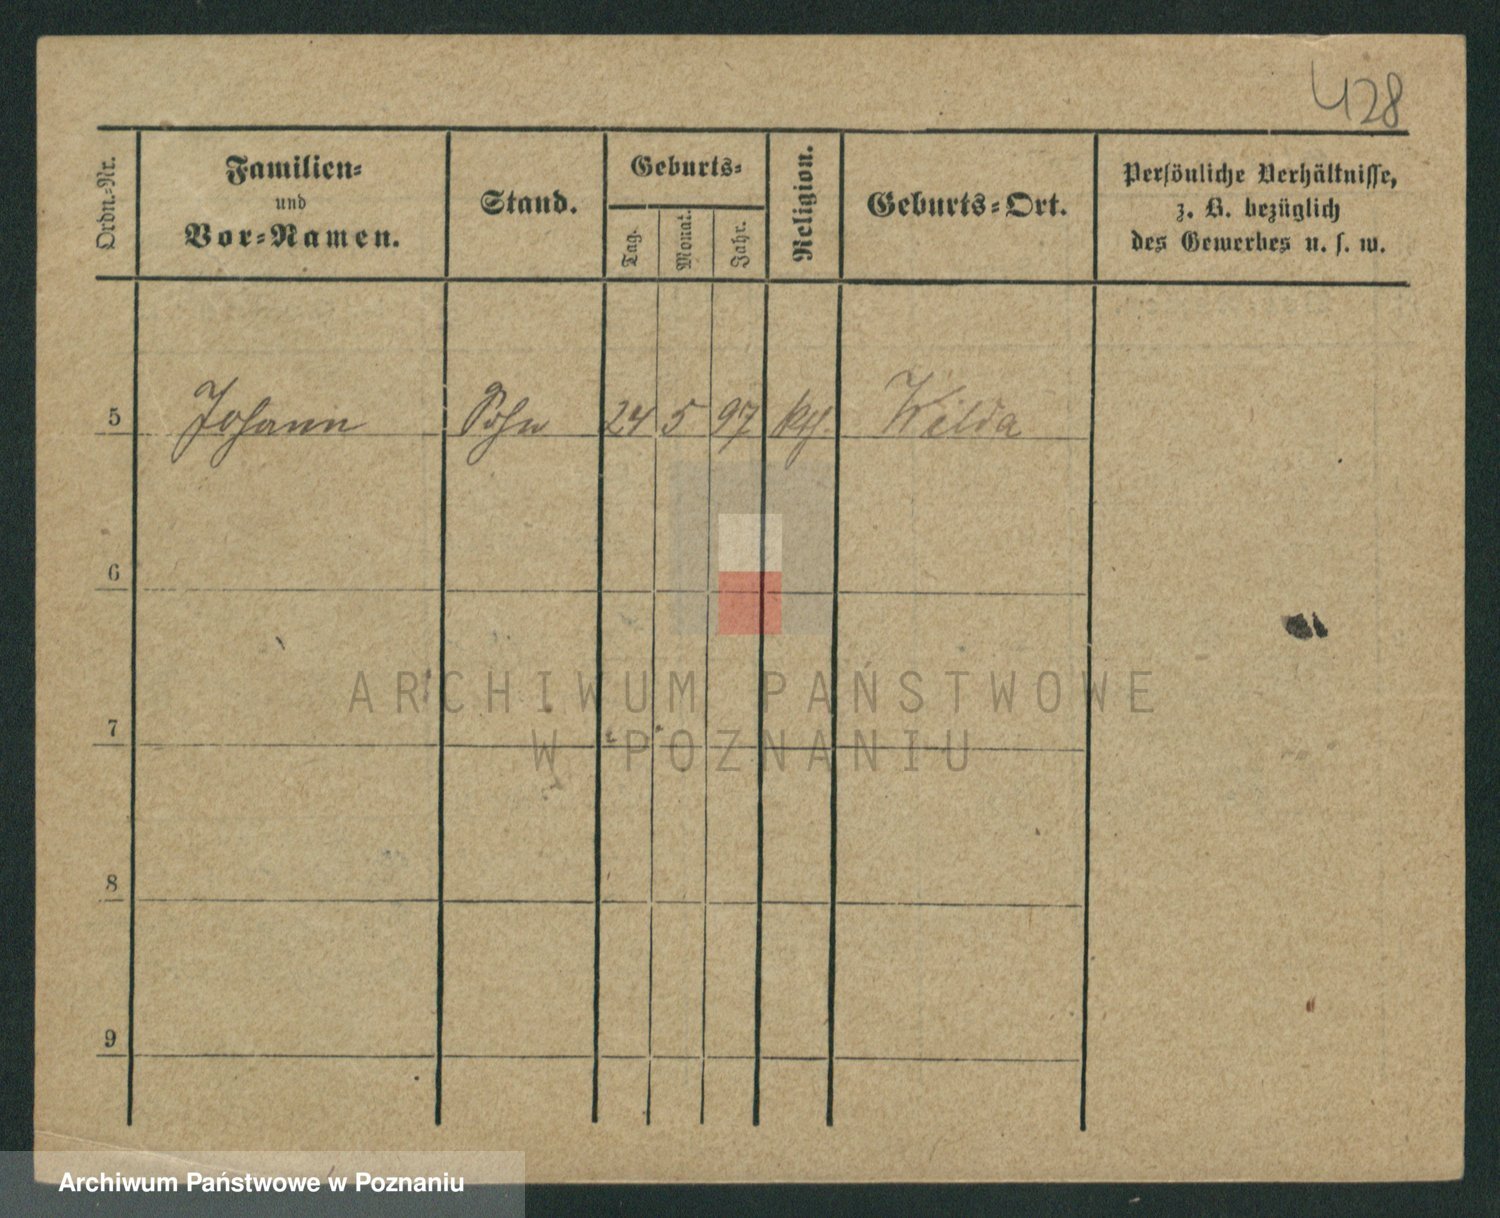 428
Ordn.-Nr.
Familien-
und
Vor-Namen.
Stand.
Geburts-
Tag.
Monat.
Jahr.
Religion.
Geburts-Ort.
Persönliche Verhältnisse,
z. B. bezüglich
des Gewerbes u. s. w.
5 Johann Sohn 24 5 97 kth. Wilda
6
7
8
9
ARCHIWUM PAŃSTWOWE
W POZNANIU
Archiwum Państwowe w Poznaniu